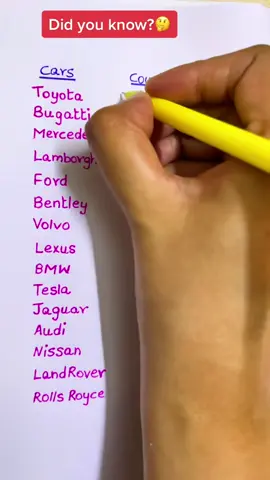 Did you know?🤔
Cars
Toyota
Bugatti
Lexus
Ford
Bentley
Volvo
BMW
Tesla
Jaguar
Audi
Nissan
LandRover
Rolls Royce